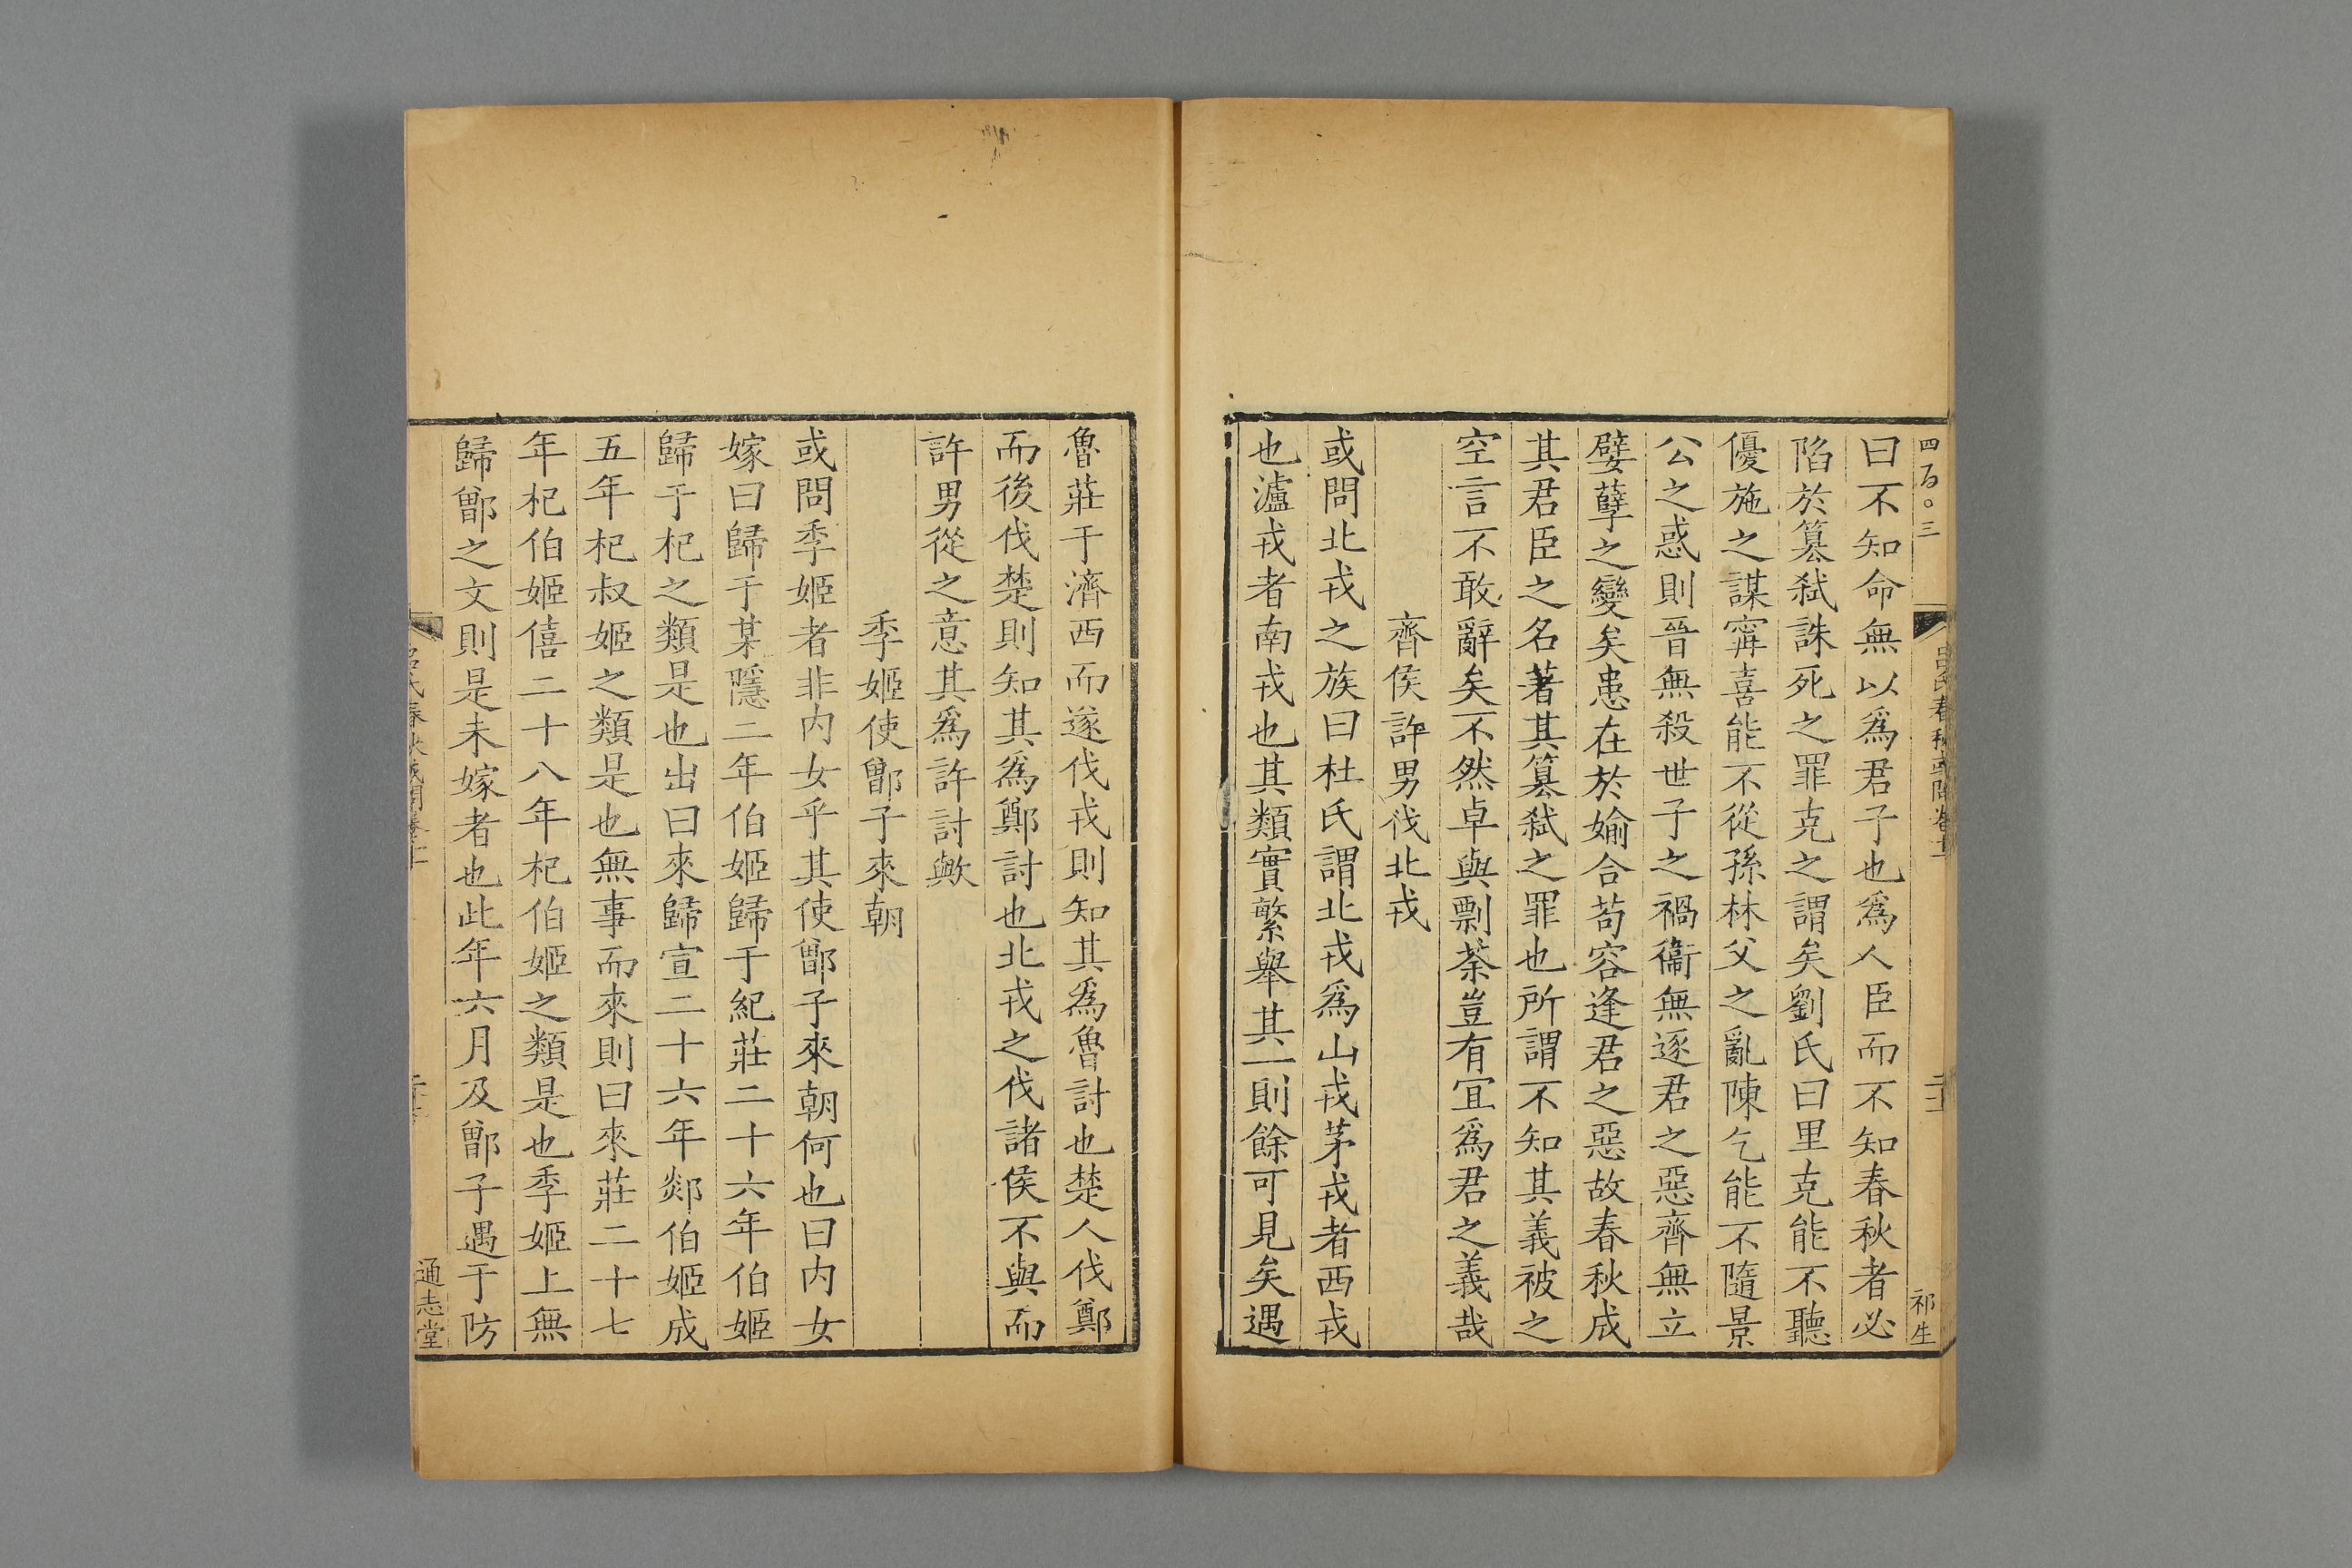 四百〇三
祁生
曰不知命無以爲君子也爲人臣而不知春秋者必
陷於篡弒誅死之罪克之謂矣劉氏曰里克能不聽
優施之謀甯喜能不從孫林父之亂陳乞能不隨景
公之惑則晉無殺世子之禍衞無逐君之惡齊無立
嬖孽之變矣患在於媮合苟容逢君之惡故春秋成
其君臣之名著其篡弒之罪也所謂不知其義被之
空言不敢辭矣不然卓與剽荼豈有宜爲君之義哉
齊侯許男伐北戎
或問北戎之族曰杜氏謂北戎爲山戎茅戎者西戎
也瀘戎者南戎也其類實繁舉其一則餘可見矣遇
魯莊于濟西而遂伐戎則知其爲魯討也楚人伐鄭
而後伐楚則知其爲鄭討也北戎之伐諸侯不與而
許男從之意其爲許討歟
季姬使鄫子來朝
或問季姬者非内女乎其使鄫子來朝何也曰内女
嫁曰歸于某隱二年伯姬歸于紀莊二十六年伯姬
歸于杞之類是也出曰來歸宣二十六年郯伯姬成
五年杞叔姬之類是也無事而來則曰來莊二十七
年杞伯姬僖二十八年杞伯姬之類是也季姬上無
歸鄫之文則是未嫁者也此年六月及鄫子遇于防
通志堂